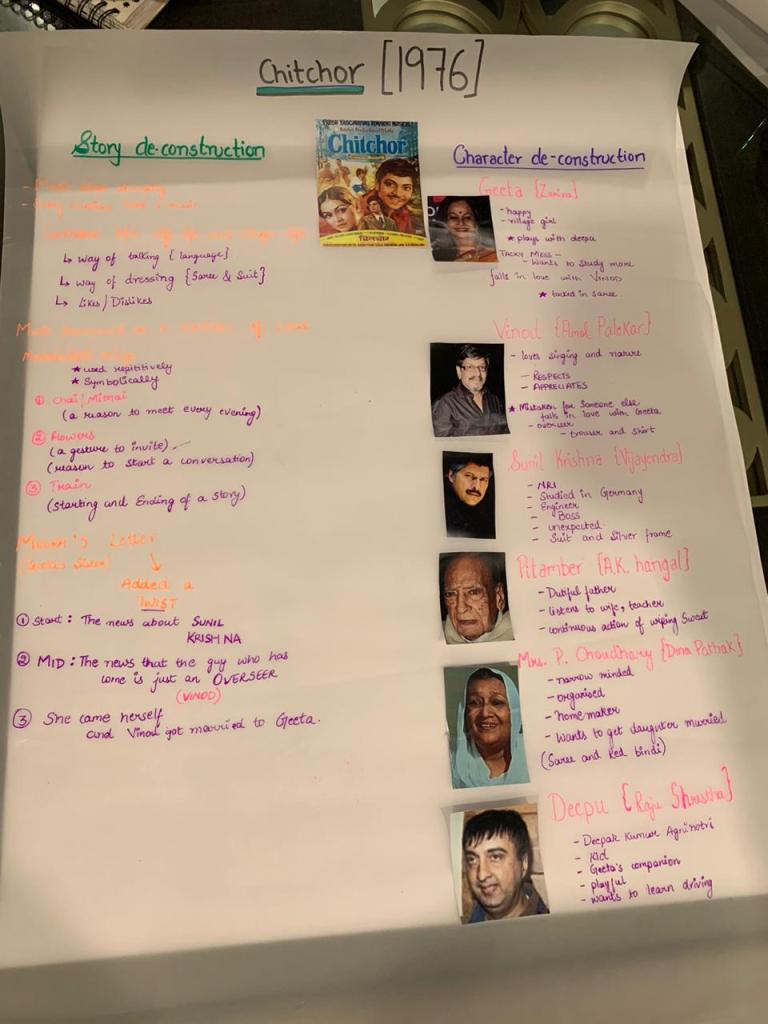 Chitchor [1976]
Story de-construction
↳ way of talking {language}
↳ way of dressing {Saree & Suit}
↳ Likes/Dislikes
of
★ used repititively
★ Symbolically
① Chai/Mithai
(a reason to meet every evening)
② Flowers
(a gesture to invite)
(reason to start a conversation)
③ Train
(Starting and Ending of a story)
Letter
Added a
TWIST
① Start: The news about SUNIL
KRISHNA
② MID: The news that the guy who has
come is just an OVERSEER
(VINOD)
③ She came herself
and Vinod got married to Geeta.
Chitchor
चितचोर
Character de-construction
Geeta {Zarina}
- happy
- village girl
★ plays with deepu
TACKY MESS -
- wants to study more
falls in love with VINOD
★ tucked in saree.
Vinod {Amol Palekar}
- loves singing and nature
- RESPECTS
- APPRECIATES
★ Mistaken for someone else
falls in love with Geeta
- overseer
- trouser and shirt
Sunil Krishna {Vijayendra}
- NRI
- Studied in Germany
- Engineer
- Boss
- unexpected
- Suit and Silver frame
Pitamber {A.K. hangal}
- Dutiful father
- listens to wife, teacher
- continuous action of wiping Sweat
Mrs. P. Choudhary {Dina Pathak}
- narrow minded
- organised
- homemaker
- wants to get daughter married
(Saree and Red bindi)
Deepu {Raju Shrestha}
- Deepak Kumar Agnihotri
- Kid
- Geeta's companion
- playful
- wants to learn driving